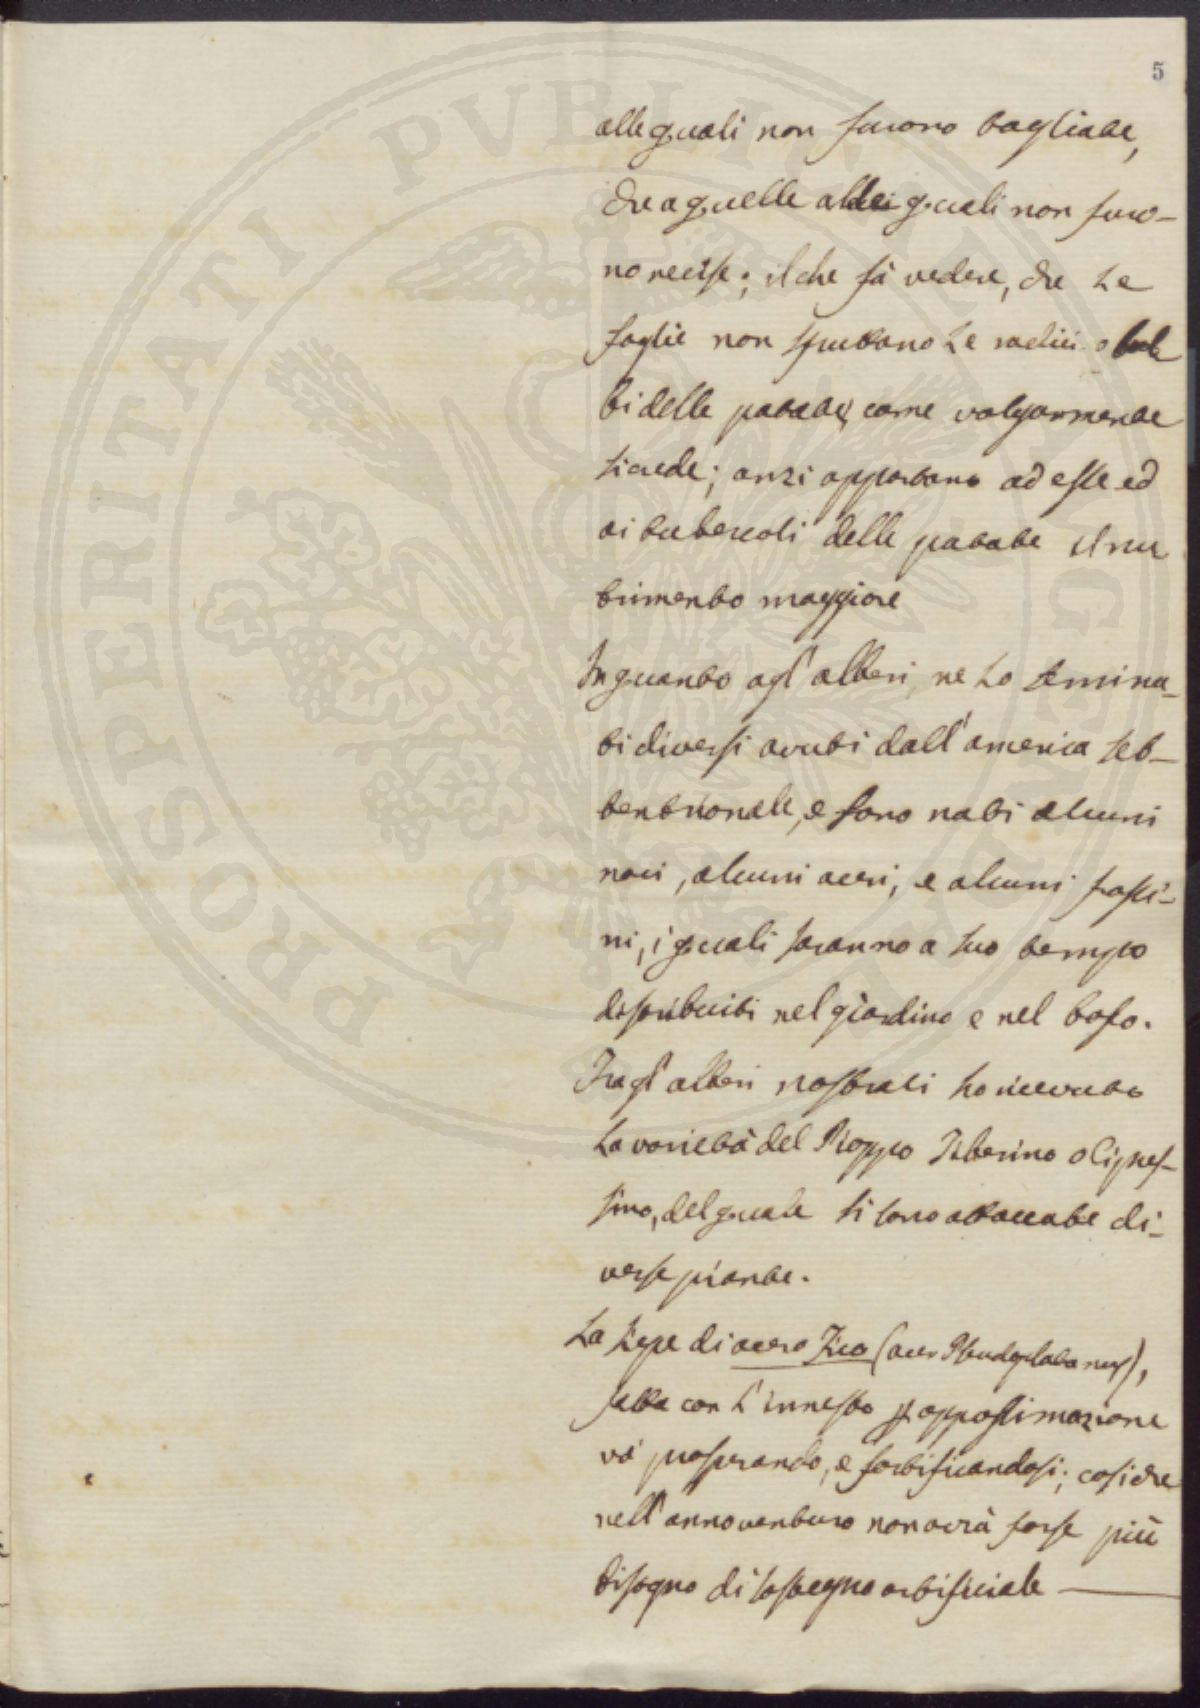 5
alle quali non furono tagliate,
che a quelle alle quali non furo-
no recise; il che fà vedere, che le
foglie non sfruttano le radici o tube
ri delle patate, come volgarmente
si crede; anzi apportano ad esse ed
ai tubercoli delle patate il nu
trimento maggiore
In quanto agl'alberi, ne ho semina-
ti diversi avuti dall'america set-
tentrionale, e sono nati alcuni
noci, alcuni aceri, e alcuni frassi-
ni, i quali saranno a suo tempo
distribuiti nel giardino e nel bosco.
Tra gl'alberi nostrali ho ricevuto
la varietà del Pioppo Tiberino o Cipres-
sino, del quale si sono attaccate di-
verse piante.
La siepe di acero Fico (acer Pseudoplatanus),
fatta con l'innesto p approssimazione
và prosperando, e fortificandosi; cosìche
nell'anno venturo non avrà forse più
bisogno di sostegno artificiale
PROSPERITATI PUBLICAE AUGENDAE